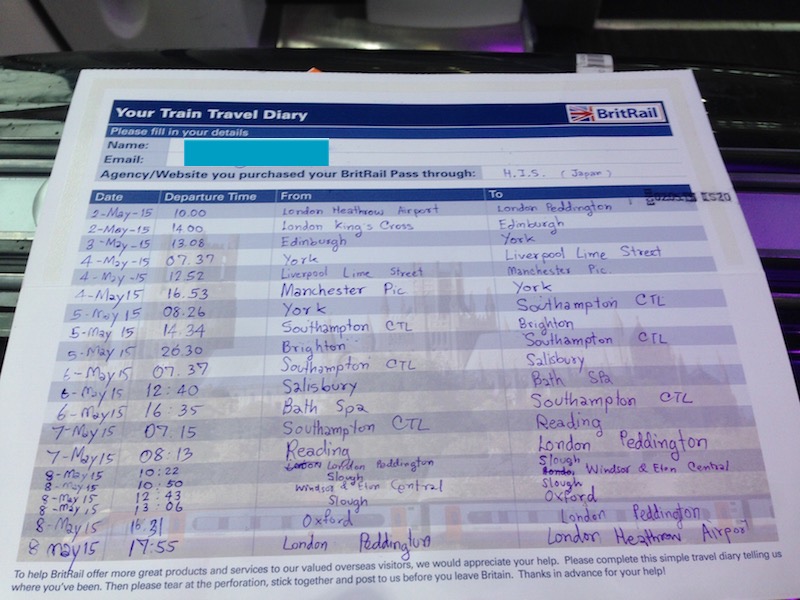 Your Train Travel Diary BritRail
Please fill in your details
Name:
Email:
Agency/Website you purchased your BritRail Pass through: H.I.S. (Japan)
Date Departure Time From To
2-May-15 10.00 London Heathrow Airport London Peddington
2-May-15 14.00 London King's Cross Edinburgh
3-May-15 13.08 Edinburgh York
4-May-15 07.37 York Liverpool Lime Street
4-May-15 12.52 Liverpool Lime Street Manchester Pic.
4-May15 16.53 Manchester Pic York
5-May 15 08.26 York Southampton CTL
5-May 15 14.34 Southampton CTL Brighton
5-May 15 20.30 Brighton Southampton CTL
6-May 15 07.37 Southampton CTL Salisbury
6-May 15 12:40 Salisbury Bath Spa
6-May15 16:35 Bath Spa Southampton CTL
7-May15 07.15 Southampton CTL Reading
7-May 15 08:13 Reading London Peddington
8-May 15 10:22 London Peddington Slough
8-May 15 10:50 Slough Windsor & Eton Central
8-May 15 12:43 Windsor & Eton Central Slough
8-May 15 13:06 Slough Oxford
8-May15 16.31 Oxford London Peddington
8 May15 17:55 London Peddington London Heathrow Airport
To help BritRail offer more great products and services to our valued overseas visitors, we would appreciate your help. Please complete this simple travel diary telling us
where you've been. Then please tear at the perforation, stick together and post to us before you leave Britain. Thanks in advance for your help!